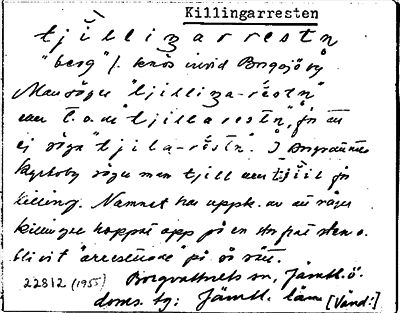 Killingarresten
tjillizarrestn
"berg" l. knös invid Borgsjö by
Man säger "tjilliza-restn"
men t.o.m. "tjillarestn", för att
ej säga "tjila-restn". I Borgvattnets
kyrkoby säger man tjill men tjíil för
killing. Namnet har uppk. av att några
killingar hoppat upp på en stor flat sten o.
blivit "arresterade" på så sätt.
22812 (1955) Borgvattnets sn, Jämtl. ö.
doms. tg: Jämtl. län [Vänd:]